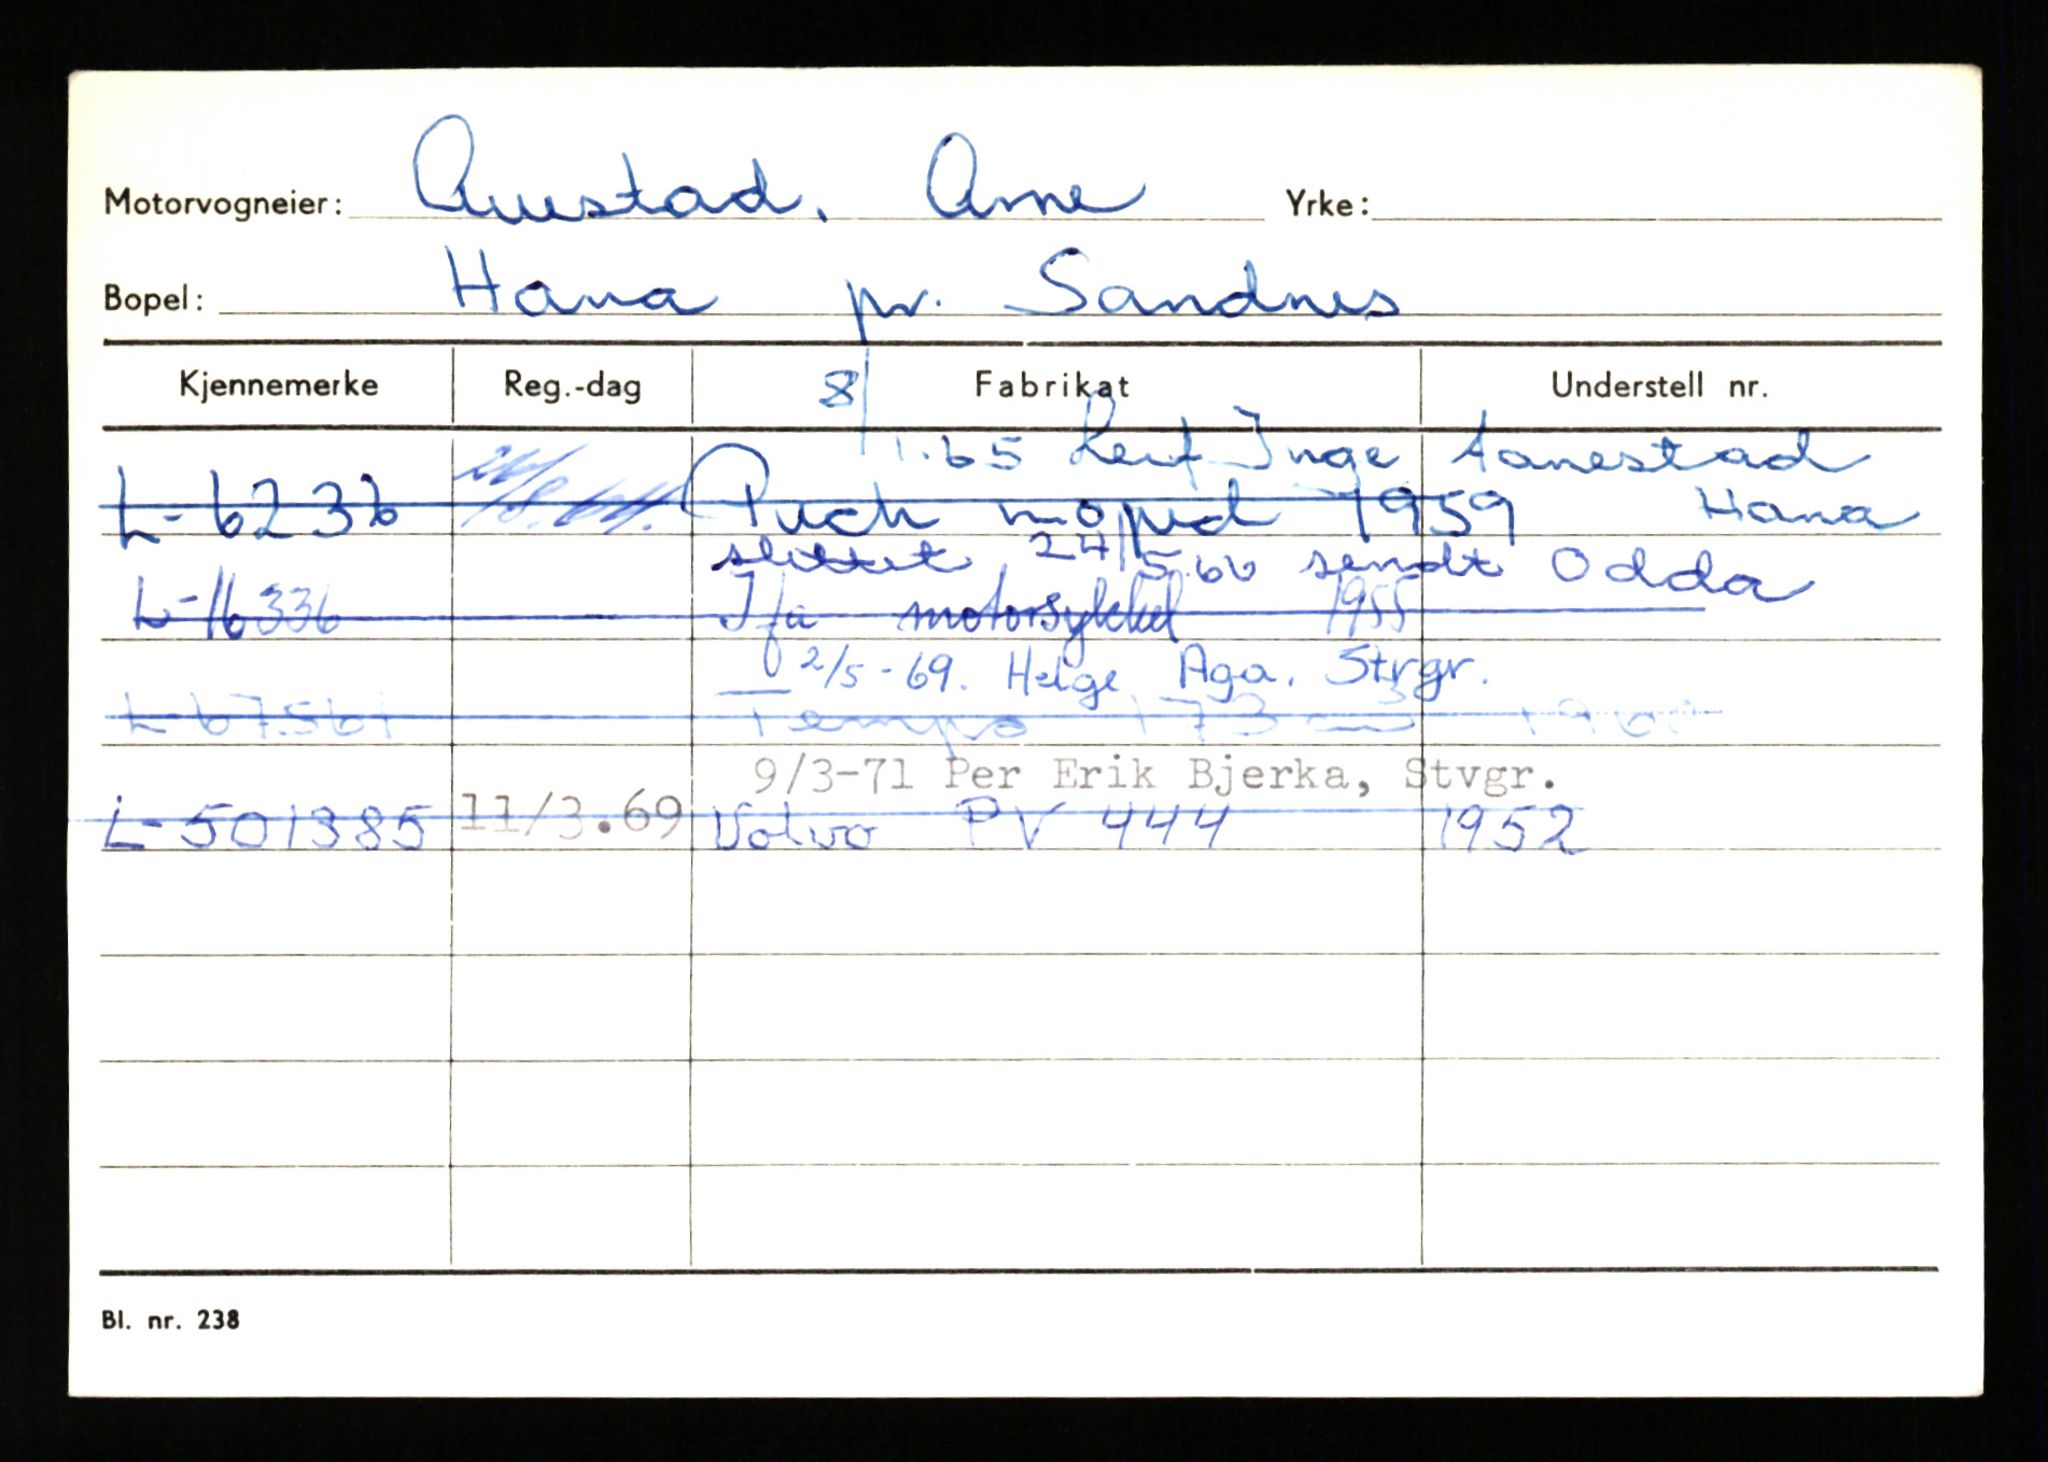 Motorvogneier: Auestad, Arne Yrke:
Bopel: Hana pr. Sandnes
Kjennemerke Reg.-dag Fabrikat Understell nr.
8/1.65 Leif Inge Aanestad
L-6236 Puch moped 1959 Hana
slettet 24/5.66 sendt Odda
L-16336 Ifa motorsykkel 1955
2/5-69. Helge Aga. Strgr.
L-67561 Tempo 173 cm3
9/3-71 Per Erik Bjerka, Stvgr.
L-501385 11/3.69 Volvo PV 444 1952
Bl. nr. 238